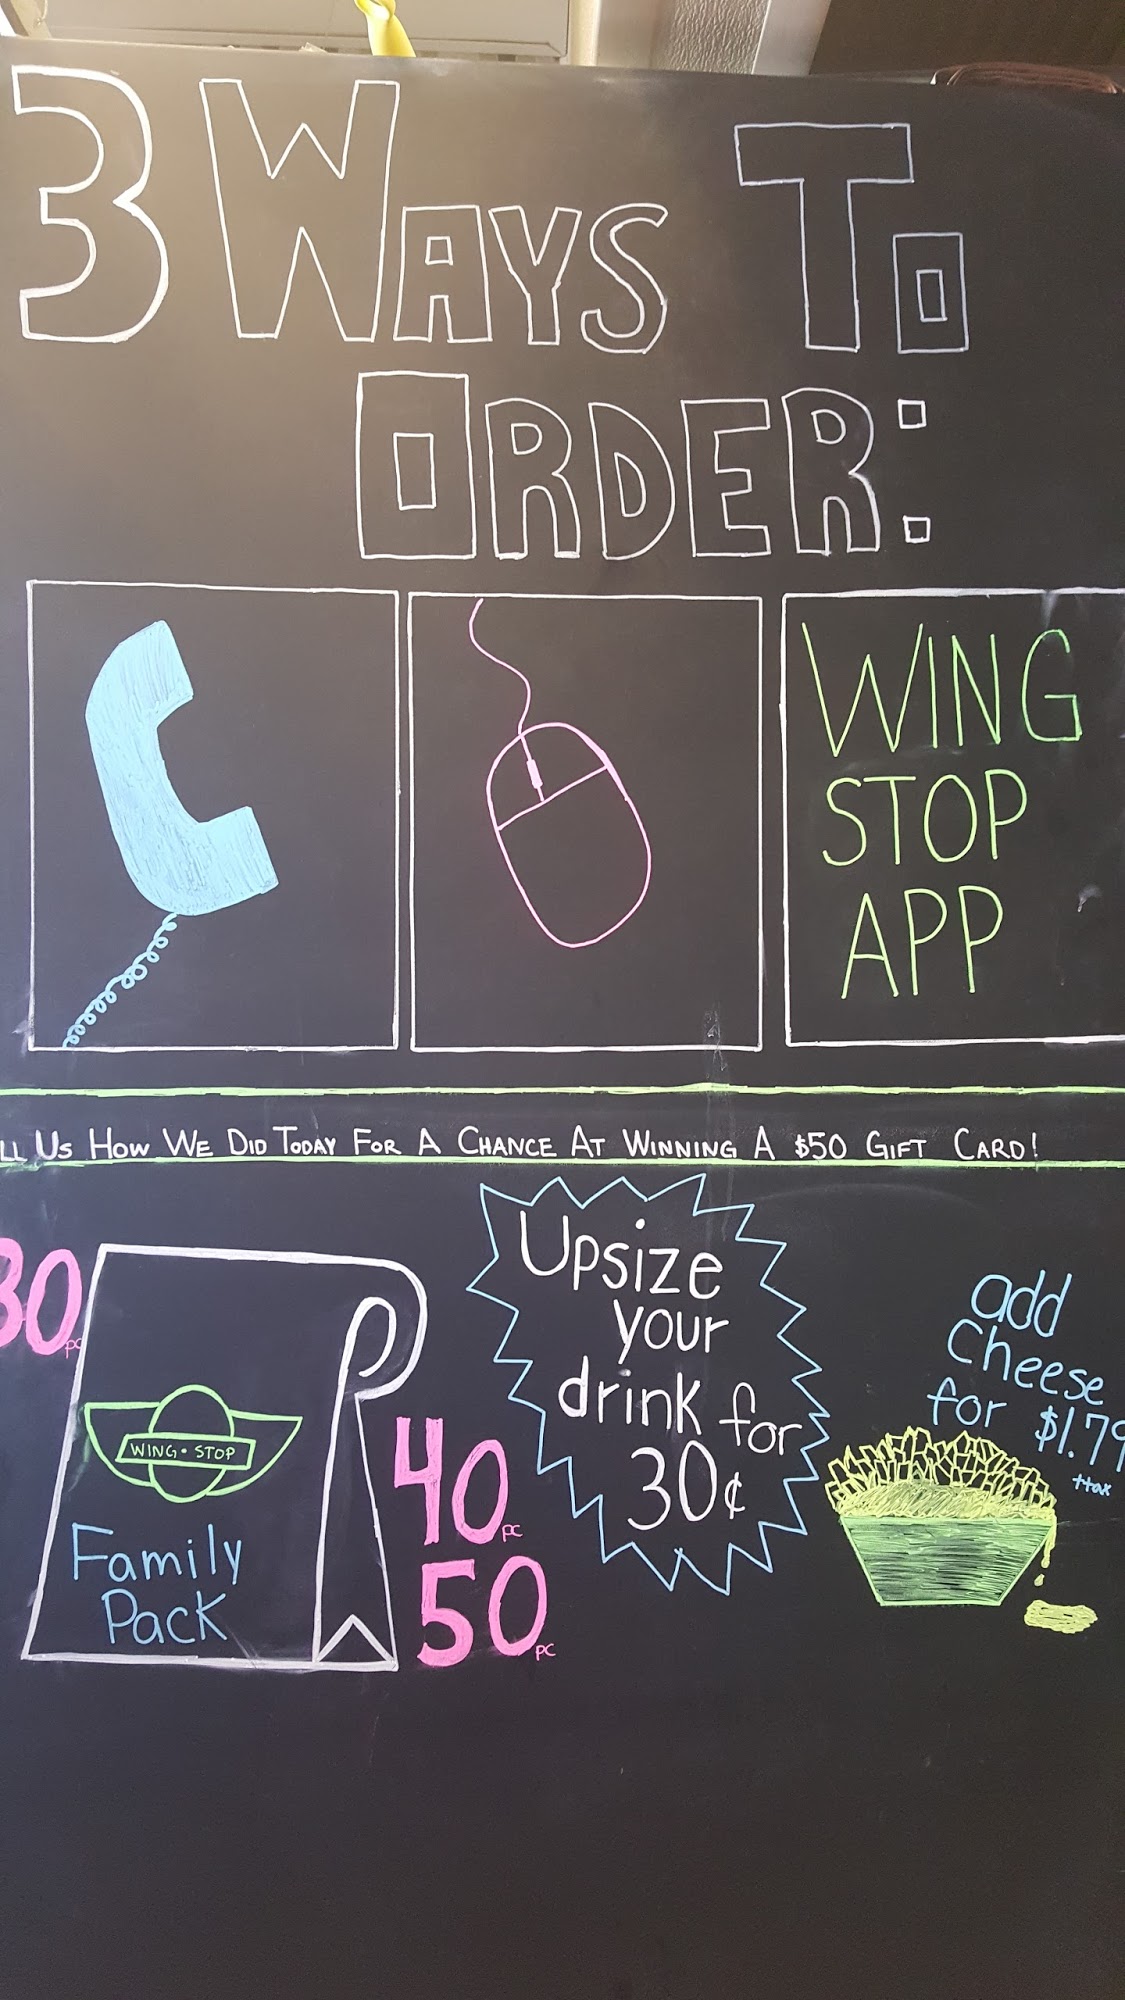 3 Ways To
Order:
WING
STOP
APP
Us How We Did Today For A Chance At Winning A $50 Gift Card!
30pc
WING • STOP
Family
Pack
40pc
50pc
Upsize
your
drink for
30¢
add
Cheese
for $1.79
+tax